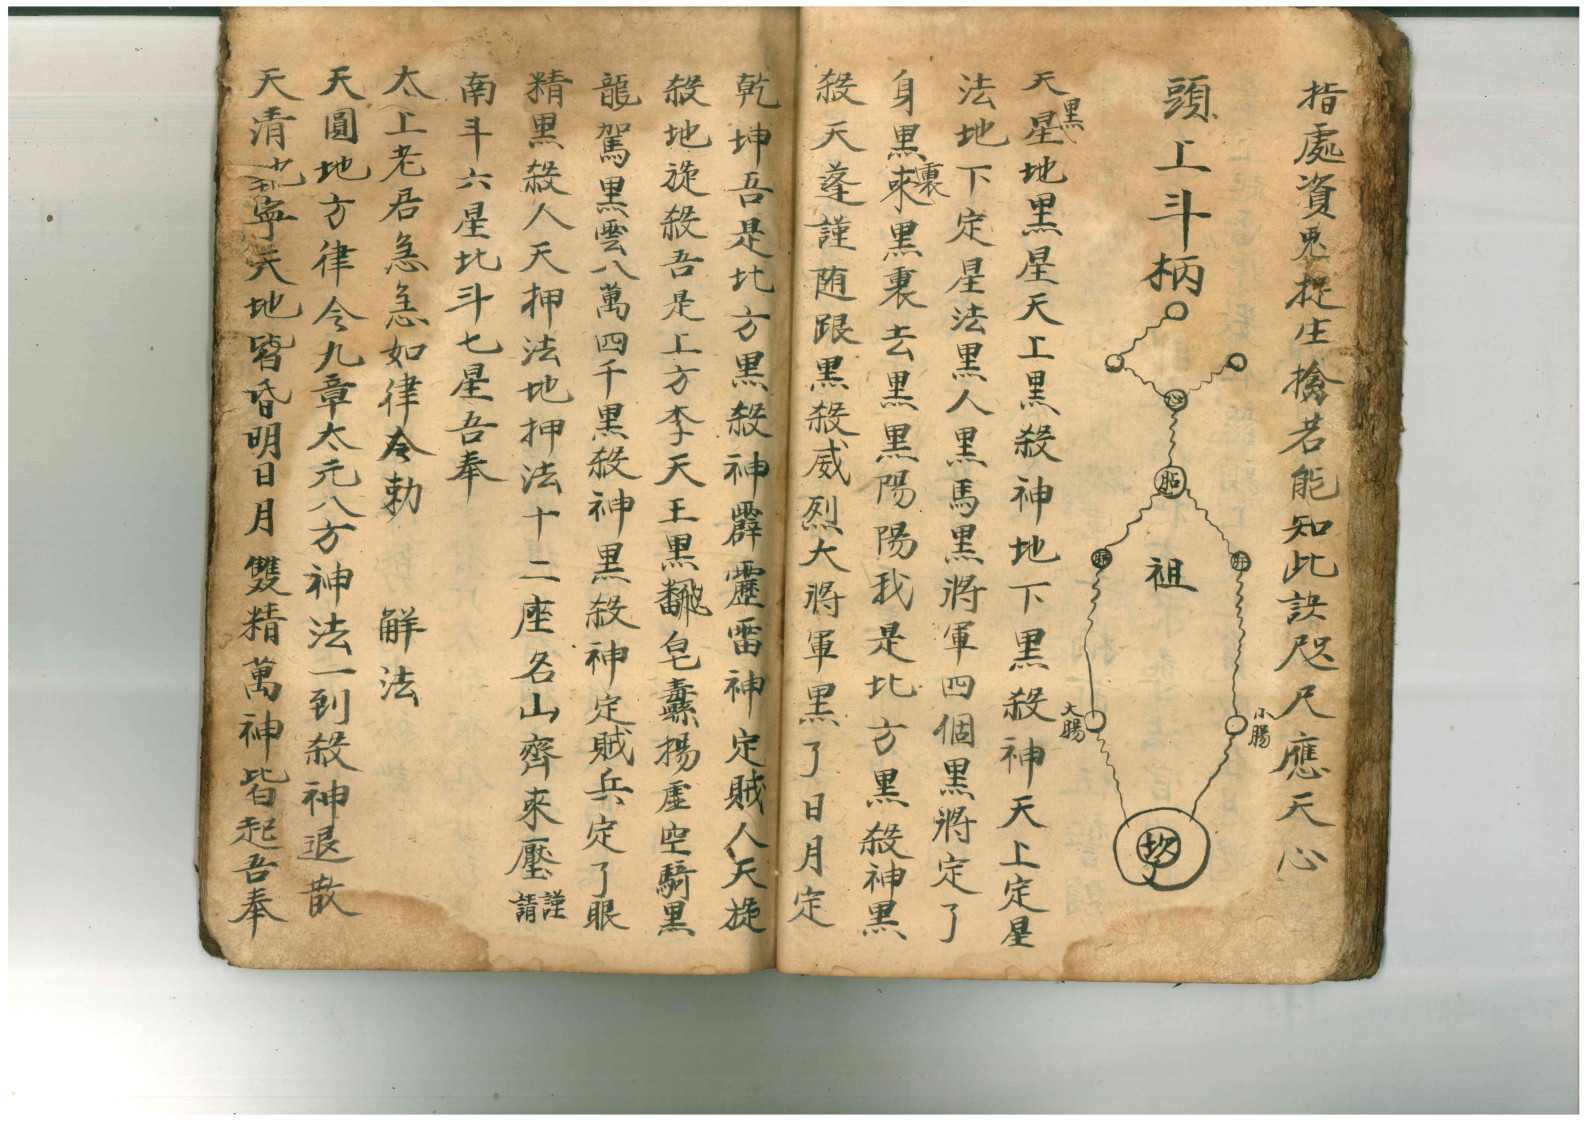 指處資鬼捉生擒若能知此訣咫尺應天心
頭上斗柄
心
祖
小腸
大腸
坎
天黑星地黑星天上黑殺神地下黑殺神天上定星
法地下定星法黑人黑馬黑將軍四個黑將定了
身黑來裏黑裏去黑黑陽陽我是北方黑殺神黑
殺天蓬謹随跟黑殺威烈大將軍黑了日月定
乾坤吾是北方黑殺神霹靂雷神定賊人天旋
殺地旋殺吾是上方李天王黑飜皂纛揚虛空騎黑
龍駕黑雲八萬四千黑殺神黑殺神定賊兵定了眼
精黑殺人天押法地押法十二座名山齊來壓謹請
南斗六星北斗七星吾奉
太上老君急急如律令勅 解法
天圓地方律令九章太元八方神法一到殺神退散
天清地寧天地皆昏明日月雙精萬神皆起吾奉